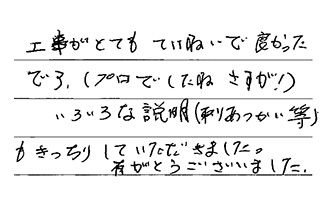 工事がとても ていねいで 良かった
でろ.(プロでしたね さすが!)
いろいろな説明(取りあつかい等)
もきっちりしていただきました。
有がとうございいました.